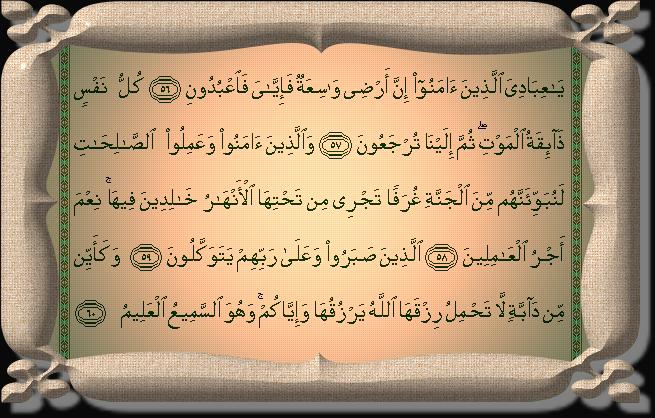 يَـٰعِبَادِىَ ٱلَّذِينَ ءَامَنُوٓا۟ إِنَّ أَرْضِى وَٰسِعَةٌ فَإِيَّـٰىَ فَٱعْبُدُونِ ٥٦ كُلُّ نَفْسٍ
ذَآئِقَةُ ٱلْمَوْتِ ۖ ثُمَّ إِلَيْنَا تُرْجَعُونَ ٥٧ وَٱلَّذِينَ ءَامَنُوا۟ وَعَمِلُوا۟ ٱلصَّـٰلِحَـٰتِ
لَنُبَوِّئَنَّهُم مِّنَ ٱلْجَنَّةِ غُرَفًا تَجْرِى مِن تَحْتِهَا ٱلْأَنْهَـٰرُ خَـٰلِدِينَ فِيهَا ۚ نِعْمَ
أَجْرُ ٱلْعَـٰمِلِينَ ٥٨ ٱلَّذِينَ صَبَرُوا۟ وَعَلَىٰ رَبِّهِمْ يَتَوَكَّلُونَ ٥٩ وَكَأَيِّن
مِّن دَآبَّةٍ لَّا تَحْمِلُ رِزْقَهَا ٱللَّهُ يَرْزُقُهَا وَإِيَّاكُمْ ۚ وَهُوَ ٱلسَّمِيعُ ٱلْعَلِيمُ ٦٠